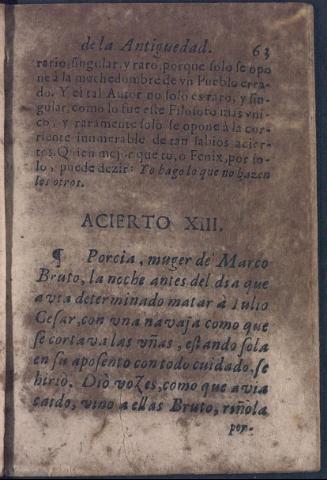 de la Antiguedad. 63
rario, singular, y raro, porque solo se opo
ne à la muchedumbre de vn Pueblo erra-
do. Y el tal Autor no solo es raro, y sin-
gular, como lo fue este Filosofo mas vni-
co, y raramente solo se opone à la cor-
riente inumerable de tan sabios acier-
tos. Quien mejor que tu, o Fenix, por so-
lo, puede dezir: Yo hago lo que no hazen
los otros.
ACIERTO XIII.
¶ Porcia, muger de Marco
Bruto, la noche antes del dia que
avia determinado matar à Iulio
Cesar, con vna navaja como que
se cortava las vñas, estando sola
en su aposento con todo cuidado, se
hiriò. Diò vozes, como que avia
caido, vino a ellas Bruto, riñola
por-